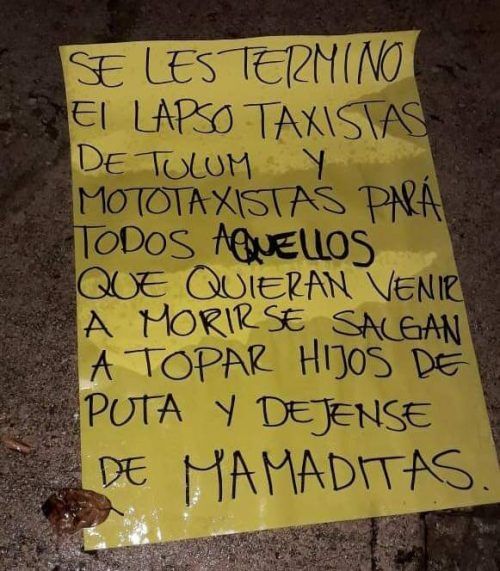 SE LES TERMINO
El LAPSO TAXISTAS
DE TULUM Y
MOTOTAXISTAS PARÁ
TODOS AQUELLOS
QUE QUIERAN VENIR
A MORIRSE SALGAN
A TOPAR HIJOS DE
PUTA Y DEJENSE
DE MAMADITAS.